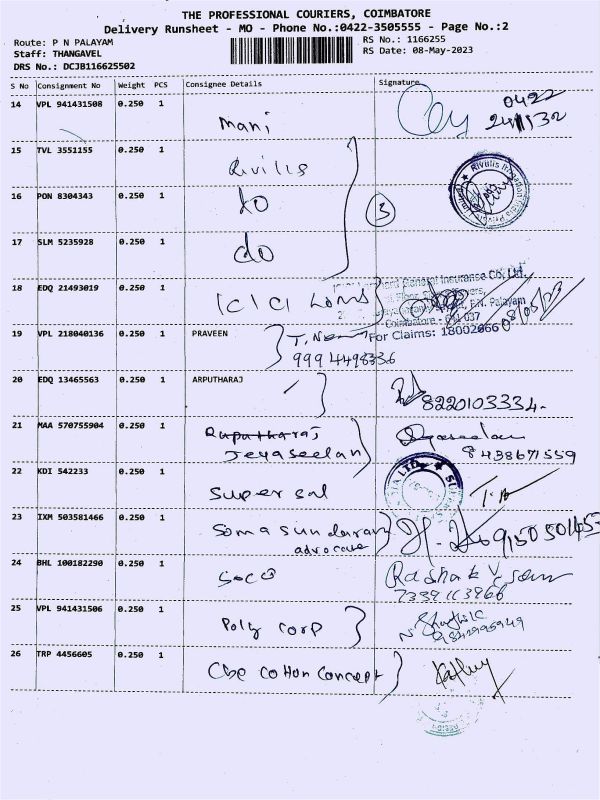 THE PROFESSIONAL COURIERS, COIMBATORE
Delivery Runsheet - MO - Phone No.:0422-3505555 - Page No.:2
Route: P N PALAYAM
RS No.: 1166255
Staff: THANGAVEL
RS Date: 08-May-2023
DRS No.: DCJB116625502
S No Consignment No Weight PCS Consignee Details Signature
14 VPL 941431508 0.250 1 Mani 0422
15 TVL 3551155 0.250 1 Rivilis
16 PON 8304343 0.250 1 do 3
17 SLM 5235928 0.250 1 do
18 EDQ 21493019 0.250 1 ICICI Lomb
General Insurance Co. Ltd.
P.N. Palayam
Coimbatore - 641 037
For Claims: 18002666
08/05/23
19 VPL 218040136 0.250 1 PRAVEEN
9994498336
20 EDQ 13465563 0.250 1 ARPUTHARAJ
8220103334
21 MAA 570755904 0.250 1 Ruputharaj
Jeyaseelan Jeyaseelan
8438671559
22 KDI 542233 0.250 1 Super sal
23 IXM 503581466 0.250 1 Soma Sundaram
advocate
24 BHL 100182290 0.250 1 Soco
7339113966
25 VPL 941431506 0.250 1 Poly corp
26 TRP 4456605 0.250 1 Cbe cotton concept